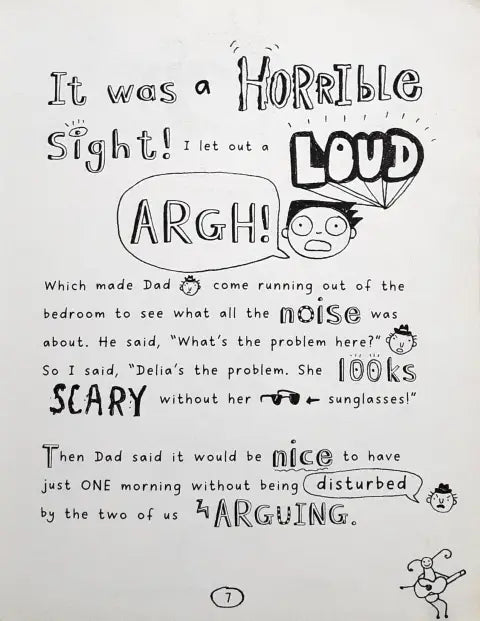 It was a HORRIBLE
Sight! I let out a LOUD
ARGH!
Which made Dad come running out of the
bedroom to see what all the noise was
about. He said, "What's the problem here?"
So I said, "Delia's the problem. She looks
SCARY without her sunglasses!"
Then Dad said it would be nice to have
just ONE morning without being disturbed
by the two of us ARGUING.
7